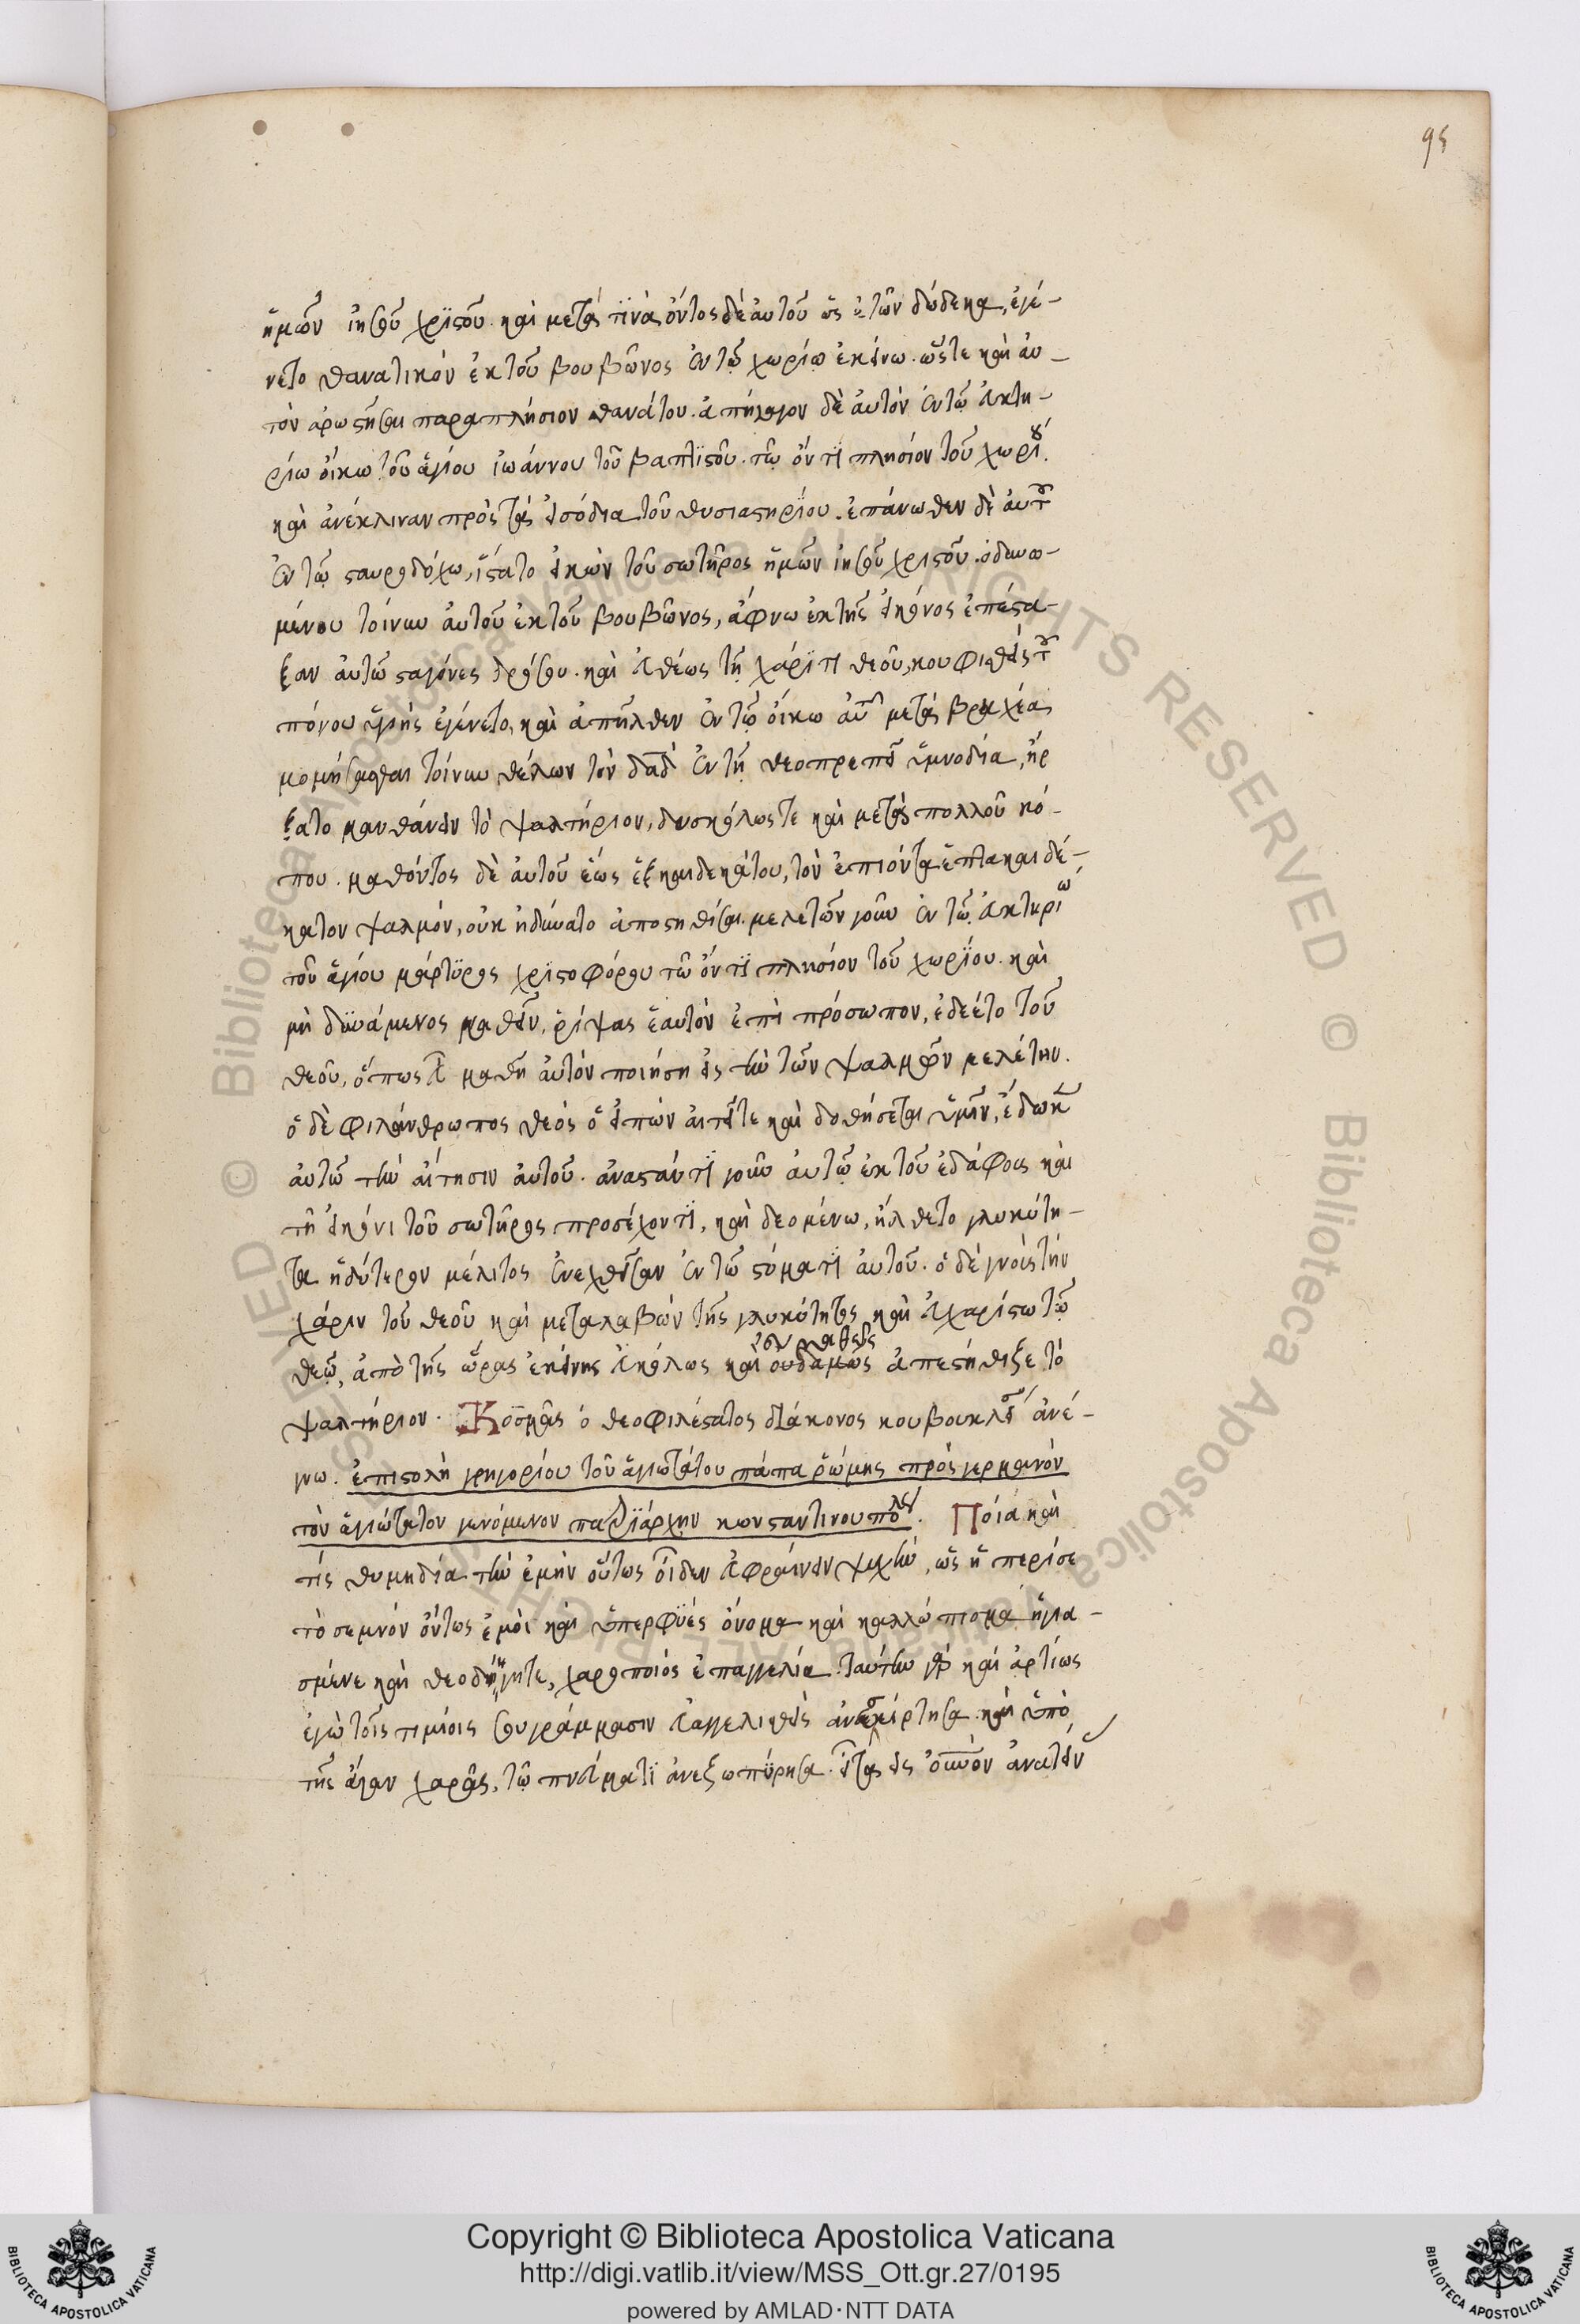 95
ἡμῶν ἰησοῦ χριστοῦ. καὶ μετά τινα ὄντος δὲ αὐτοῦ ὡς ἐτῶν δώδεκα, ἐγέ-
νετο θανατικὸν ἐκ τοῦ βουβῶνος ἐν τῷ χωρίω ἐκείνω. ὥστε καὶ αὐ-
τὸν ἀρωστῆσαι παραπλήσιον θανάτου. ἀπήγαγον δὲ αὐτὸν ἐν τῷ εὐκτη-
ρίω οἴκω τοῦ ἁγίου ἰωάννου τοῦ βαπτιστοῦ. τῷ ὄντι πλησίον τοῦ χωρίου.
καὶ ἀνέκλιναν πρὸς τὰ εἰσόδια τοῦ θυσιαστηρίου. ἐπάνωθεν δὲ αὐτοῦ
ἐν τῷ σταυροδόχω, ἵστατο εἰκὼν τοῦ σωτῆρος ἡμῶν ἰησοῦ χριστοῦ. ὀδυνω-
μένου τοίνυν αὐτοῦ ἐκ τοῦ βουβῶνος, ἄφνω ἐκ τῆς εἰκόνος ἐπέστα-
ξαν αὐτῷ σταγόνες δρόσου. καὶ εὐθέως τῇ χάριτι θεοῦ, κουφισθέντος τοῦ
πόνου ὑγιὴς ἐγένετο, καὶ ἀπῆλθεν ἐν τῷ οἴκω αὐτοῦ μετὰ βραχέα
μομήσασθαι τοίνυν θέλων τὸν δαδ ἐν τῇ θεοπρεπεῖ ὑμνοδία, ἤρ
ξατο μανθάνειν τὸ ψαλτήριον, δυσκόλως τε καὶ μετὰ πολλοῦ κό-
που. μαθόντος δὲ αὐτοῦ ἕως ἑξκαιδεκάτου, τὸν ἐπιόντα ἑπτακαιδέ-
κατον ψαλμόν, οὐκ ἠδύνατο ἀποστηθίσαι. μελετῶν γοῦν ἐν τῷ εὐκτηρίω
τοῦ ἁγίου μάρτυρος χριστοφόρου τῷ ὄντι πλησίον τοῦ χωρίου. καὶ
μὴ δυνάμενος μαθεῖν, ῥίψας ἑαυτὸν ἐπὶ πρόσωπον, ἐδέετο τοῦ
θεοῦ, ὅπως εὐμαθῆ αὐτὸν ποιήση εἰς τὴν τῶν ψαλμῶν μελέτην.
ὁ δὲ φιλάνθρωπος θεὸς ὁ εἰπὼν αἰτεῖτε καὶ δοθήσεται ὑμῖν, ἔδωκεν
αὐτῷ τὴν αἴτησιν αὐτοῦ. ἀναστάντι γοῦν αὐτῷ ἐκ τοῦ ἐδάφους καὶ
τῇ εἰκόνι τοῦ σωτῆρος προσέχοντι, καὶ δεομένω, ἤσθετο γλυκύτη-
τα ἡδύτερον μέλιτος ἐνεχθεῖσαν ἐν τῷ στόματι αὐτοῦ. ὁ δὲ γνοὺς τὴν
χάριν τοῦ θεοῦ καὶ μεταλαβὼν τῆς γλυκύτητος καὶ εὐχαρίστω τῷ
θεῷ, ἀπὸ τῆς ὥρας ἐκείνης εὐκόλως καὶ οὐδαμῶς ἀπεστήθιξε τὸ
ψαλτήριον. Κοσμᾶς ὁ θεοφιλέστατος διάκονος κουβουκλείσιος ἀνέ-
γνω. ἐπιστολὴ γρηγορίου τοῦ ἁγιωτάτου πάπα ῥώμης πρὸς γερμανὸν
τὸν ἁγιώτατον γενόμενον πατριάρχην κωνσταντινουπόλεως. Ποία καὶ
τίς θυμηδία τὴν ἐμὴν οὕτως οἶδεν εὐφραίνειν ψυχὴν, ὡς ἡ περί σε
τὸ σεμνὸν ὄντως ἐμοὶ καὶ ὑπερφυὲς ὄνομα καὶ καλλώπισμα ἡγια-
σμένε καὶ θεοδήγητε, χαροποιὸς ἐπαγγελία. ταύτην γὰρ καὶ ἀρτίως
ἐγὼ τοῖς τιμίοις συγράμμασιν εὐαγγελισθεὶς ἀνεσκίρτησα. καὶ ὑπὸ
τῆς ἄγαν χαρᾶς, τῷ πνεύματι ἀνεξωπύρησα. εἶτα εἰς οὐνὸν ἀνατείν